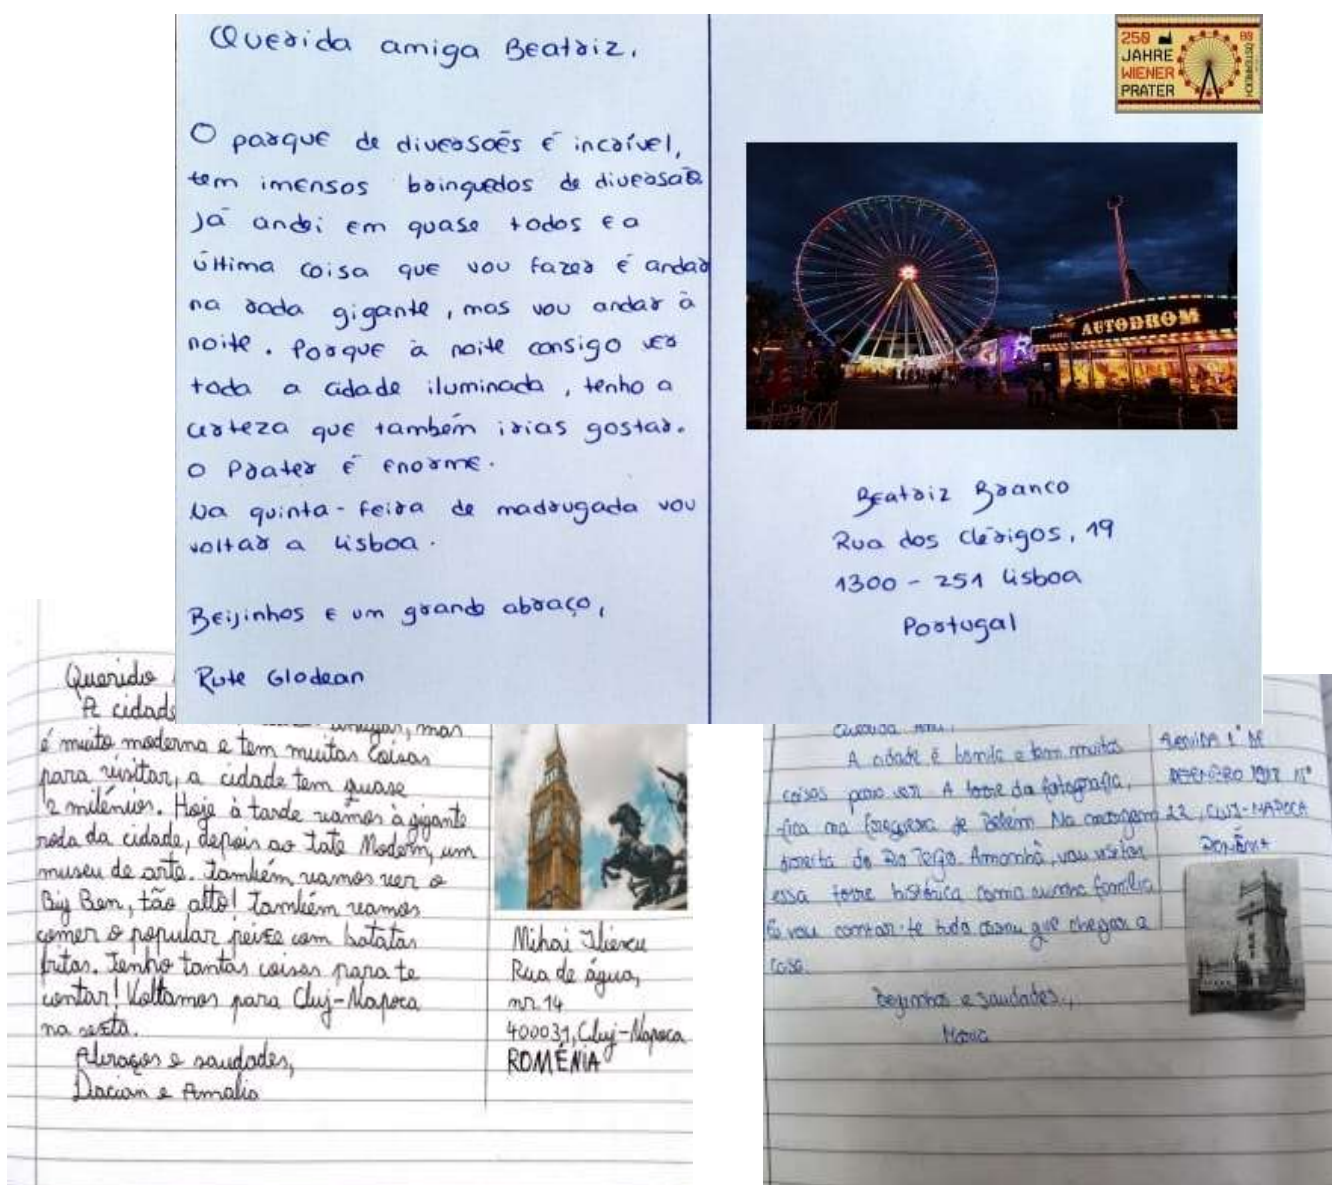 Querida amiga Beatriz,
O parque de diversões é incrível,
tem imensos brinquedos de diversão
Já andei em quase todos e a
última coisa que vou fazer é andar
na roda gigante, mas vou andar à
noite. Porque à noite consigo ver
toda a cidade iluminada, tenho a
certeza que também irias gostar.
O Prater é enorme.
Na quinta-feira de madrugada vou
voltar a Lisboa.
Beijinhos e um grande abraço,
Rute Glodean
250
JAHRE
WIENER
PRATER
80
ÖSTERREICH
AUTODROM
Beatriz Branco
Rua dos Clérigos, 19
1300-251 Lisboa
Portugal
Querido
A cidade
mas
é muito moderna e tem muitas coisas
para visitar, a cidade tem quase
2 milénios. Hoje à tarde vamos à gigante
roda da cidade, depois ao Tate Modern, um
museu de arte. Também vamos ver o
Big Ben, tão alto! Também vamos
comer o popular peixe com batatas
fritas. Tenho tantas coisas para te
contar! Voltamos para Cluj-Napoca
na sexta.
Abraços e saudades,
Dacian e Amalia
Mihai Iliescu
Rua de água,
nr. 14
400031, Cluj-Napoca
ROMÉNIA
Querida
A cidade é bonita e tem muitas
coisas para ver. A torre da fotografia,
fica na freguesia de Belém. Na margem
direita do Rio Tejo. Amanhã, vou visitar
essa torre histórica com a minha família
E vou contar-te tudo assim que chegar a
casa.
Beijinhos e saudades,
Maria
AVENIDA 1° DE
DEZEMBRO 1918 N°
22, CLUJ-NAPOCA
ROMÉNIA